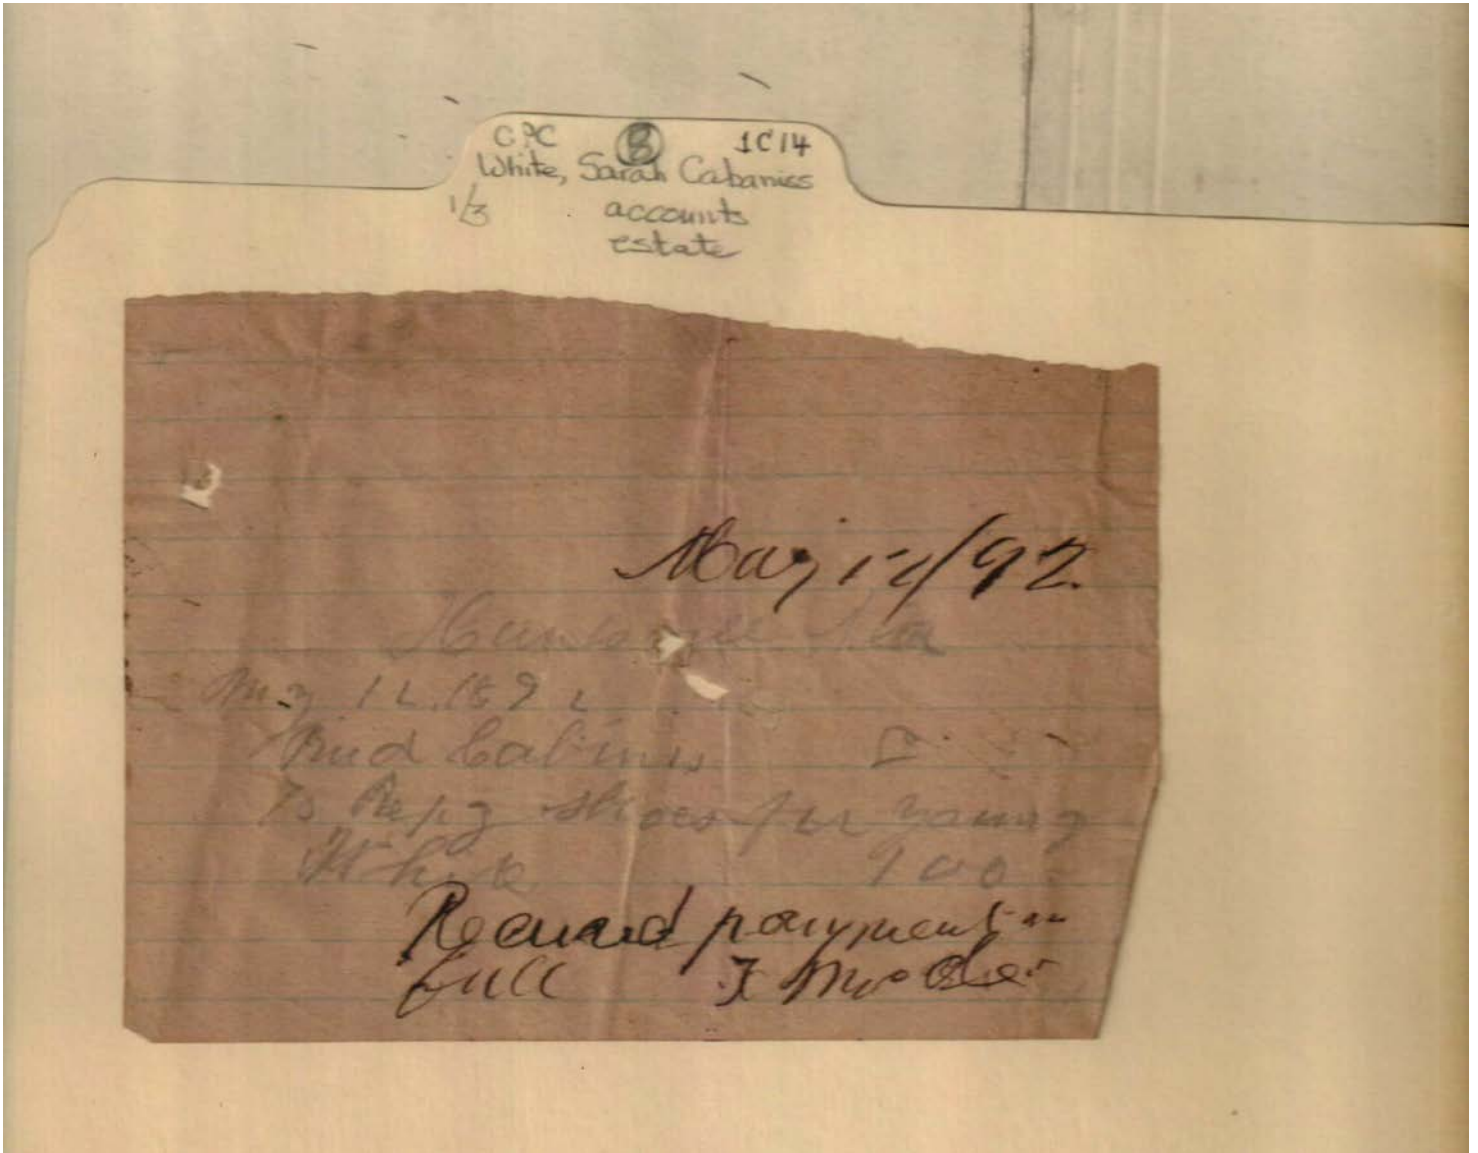 CPC 8 1C14
White, Sarah Cabaniss
1/3 accounts
estate
May 12/92
Huntsville Ala
May 12 1892
Bud Cabinis
To Repg shoes for young
White 1 00
Received payment in
full